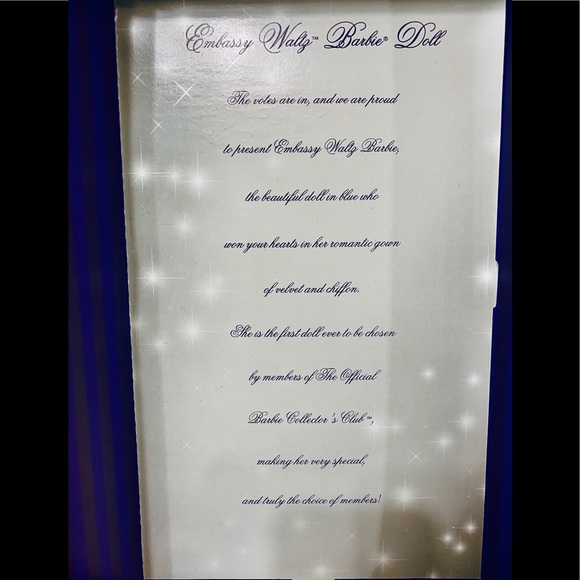 Embassy Waltz™ Barbie® Doll
The votes are in, and we are proud
to present Embassy Waltz Barbie,
the beautiful doll in blue who
won your hearts in her romantic gown
of velvet and chiffon.
She is the first doll ever to be chosen
by members of The Official
Barbie Collector's Club™,
making her very special,
and truly the choice of members!